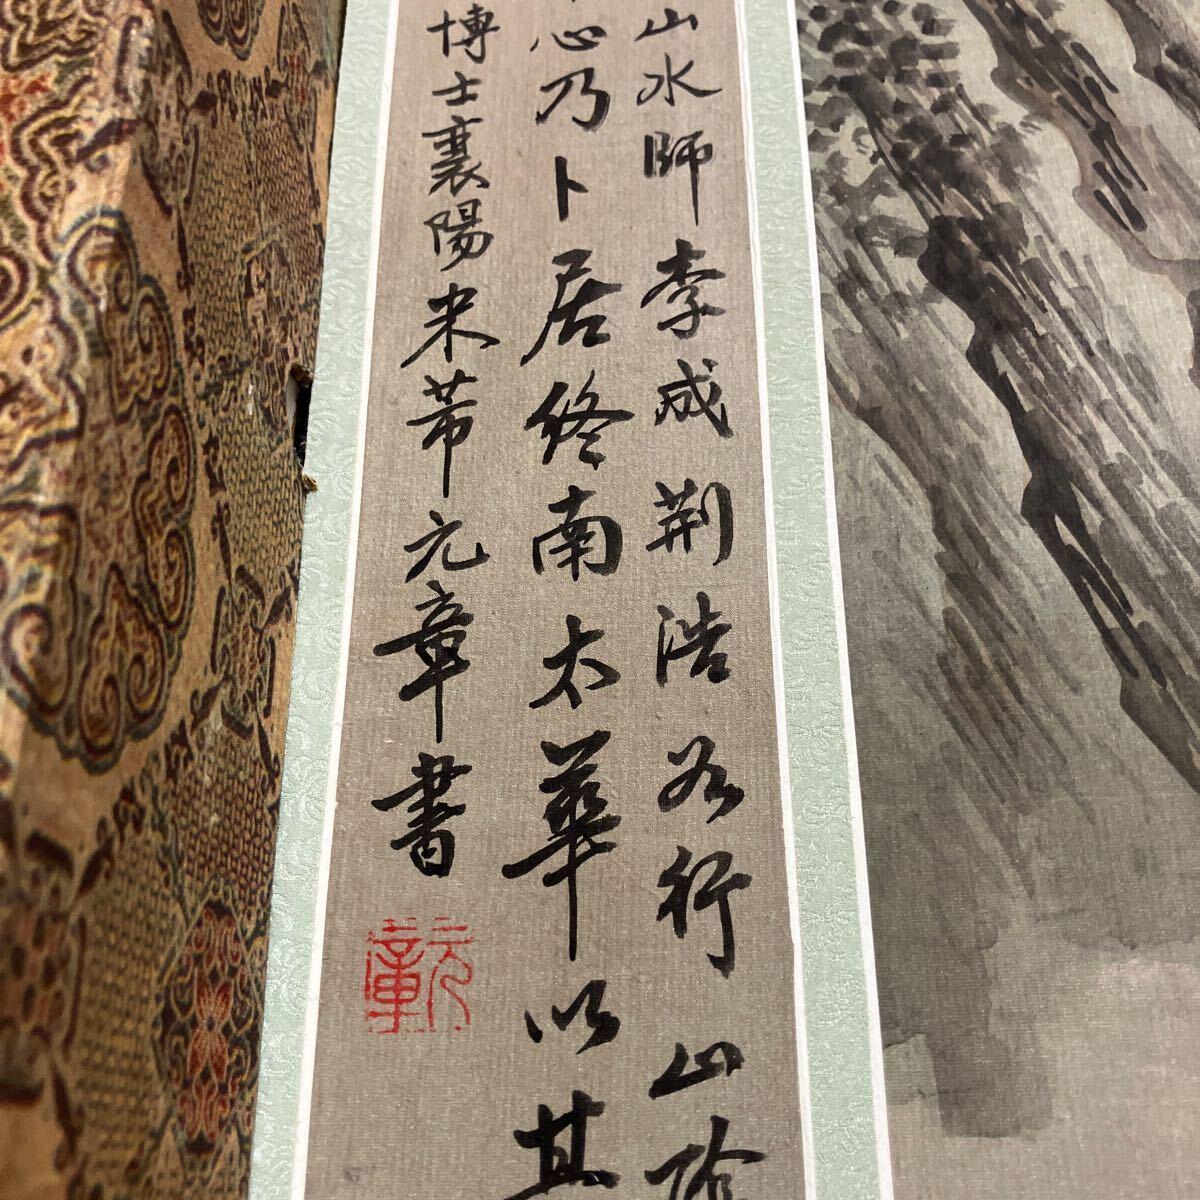 山水師李成荆浩為行山
心乃卜居終南太華以其
博士襄陽米芾元章書
元章